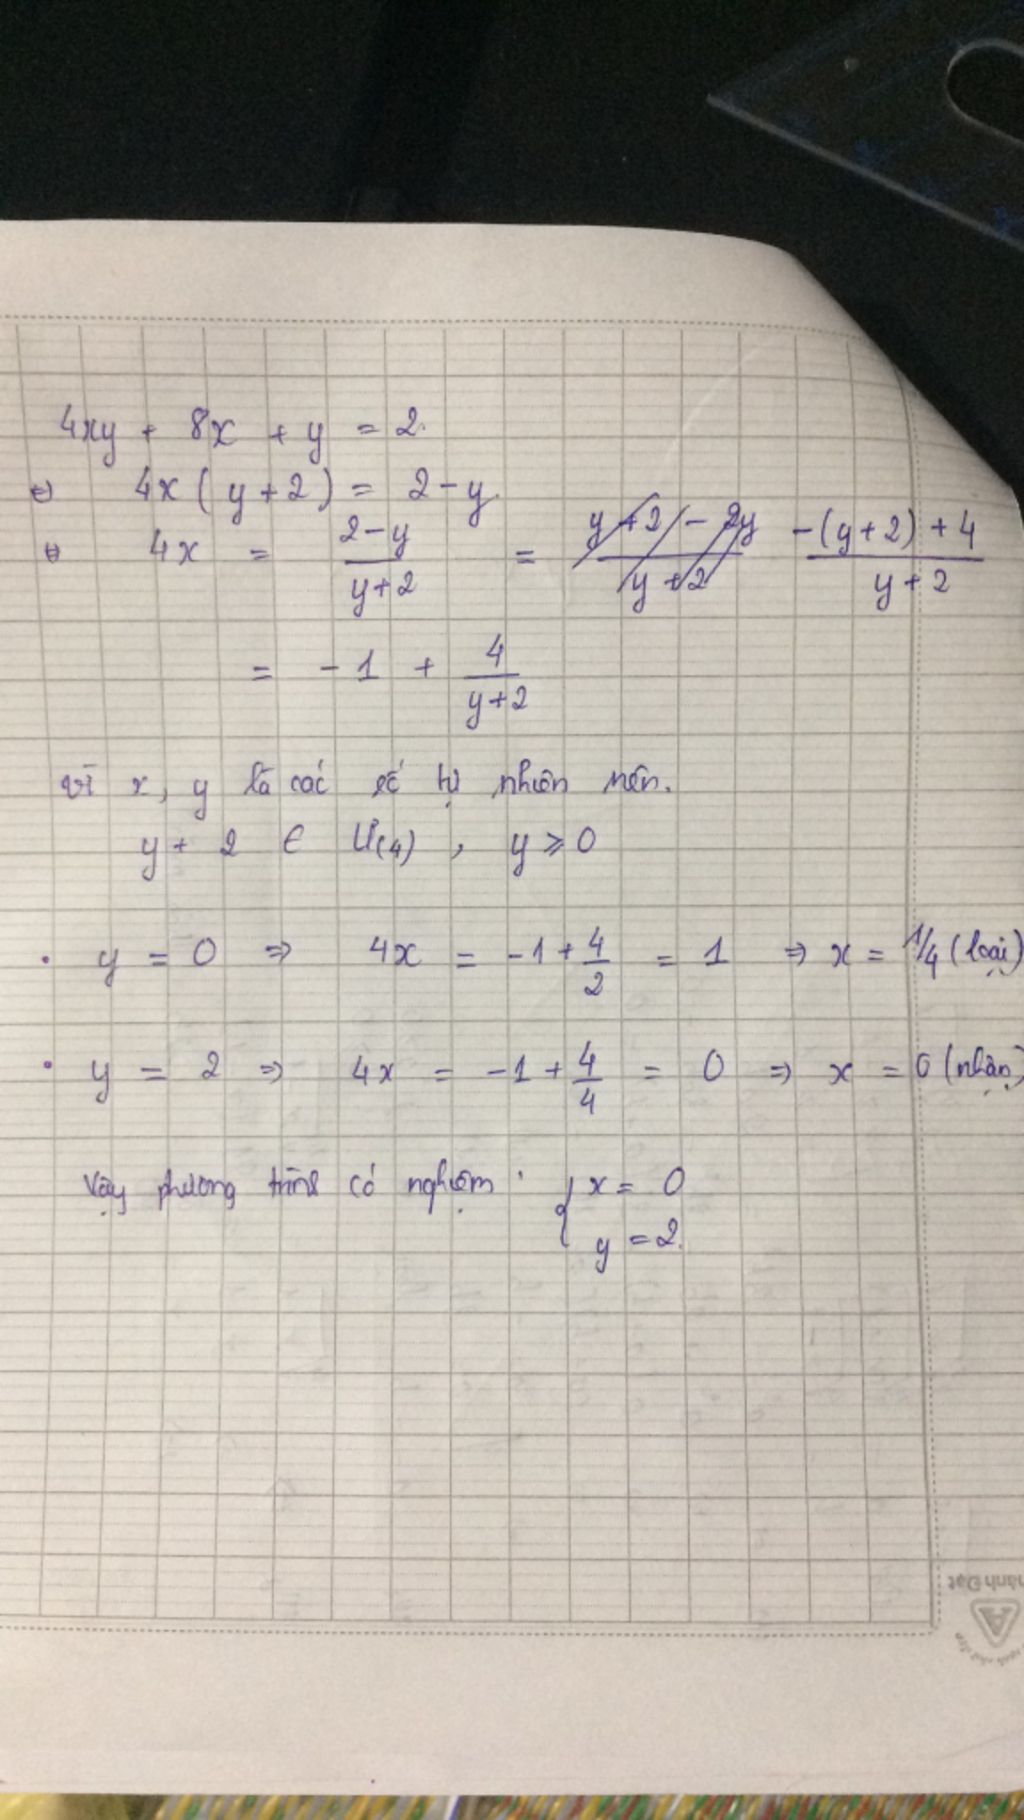 4xy + 8x + y = 2.
⇔ 4x ( y + 2 ) = 2 - y
⇔ 4x = \frac{2-y}{y+2} = \frac{-(y+2)+4}{y+2}
= -1 + \frac{4}{y+2}
vì x, y là các số tự nhiên nên.
y + 2 ∈ Ư(4) , y ⩾ 0
• y = 0 ⇒ 4x = -1 + \frac{4}{2} = 1 ⇒ x = 1/4 (loại)
• y = 2 ⇒ 4x = -1 + \frac{4}{4} = 0 ⇒ x = 0 (nhận)
Vậy phương trình có nghiệm : { x = 0
y = 2.